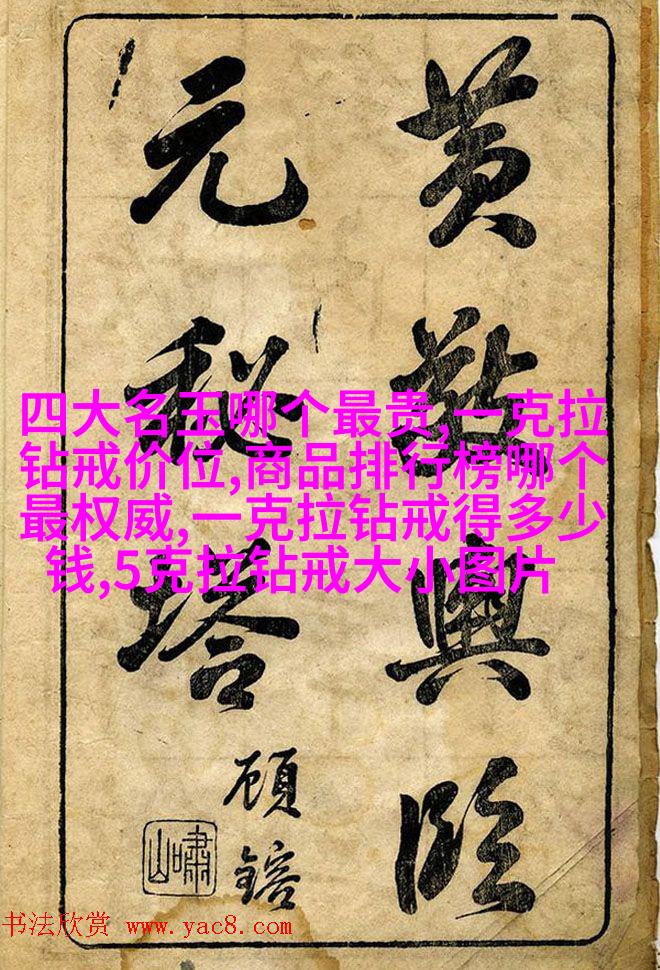 黄敬輿臨
元秘塔
顾鎔
嘯山
四大名玉哪个最贵,一克拉
钻戒价位,商品排行榜哪个
最权威,一克拉钻戒得多少
钱,5克拉钻戒大小图片
书法欣赏 www.yac8.com